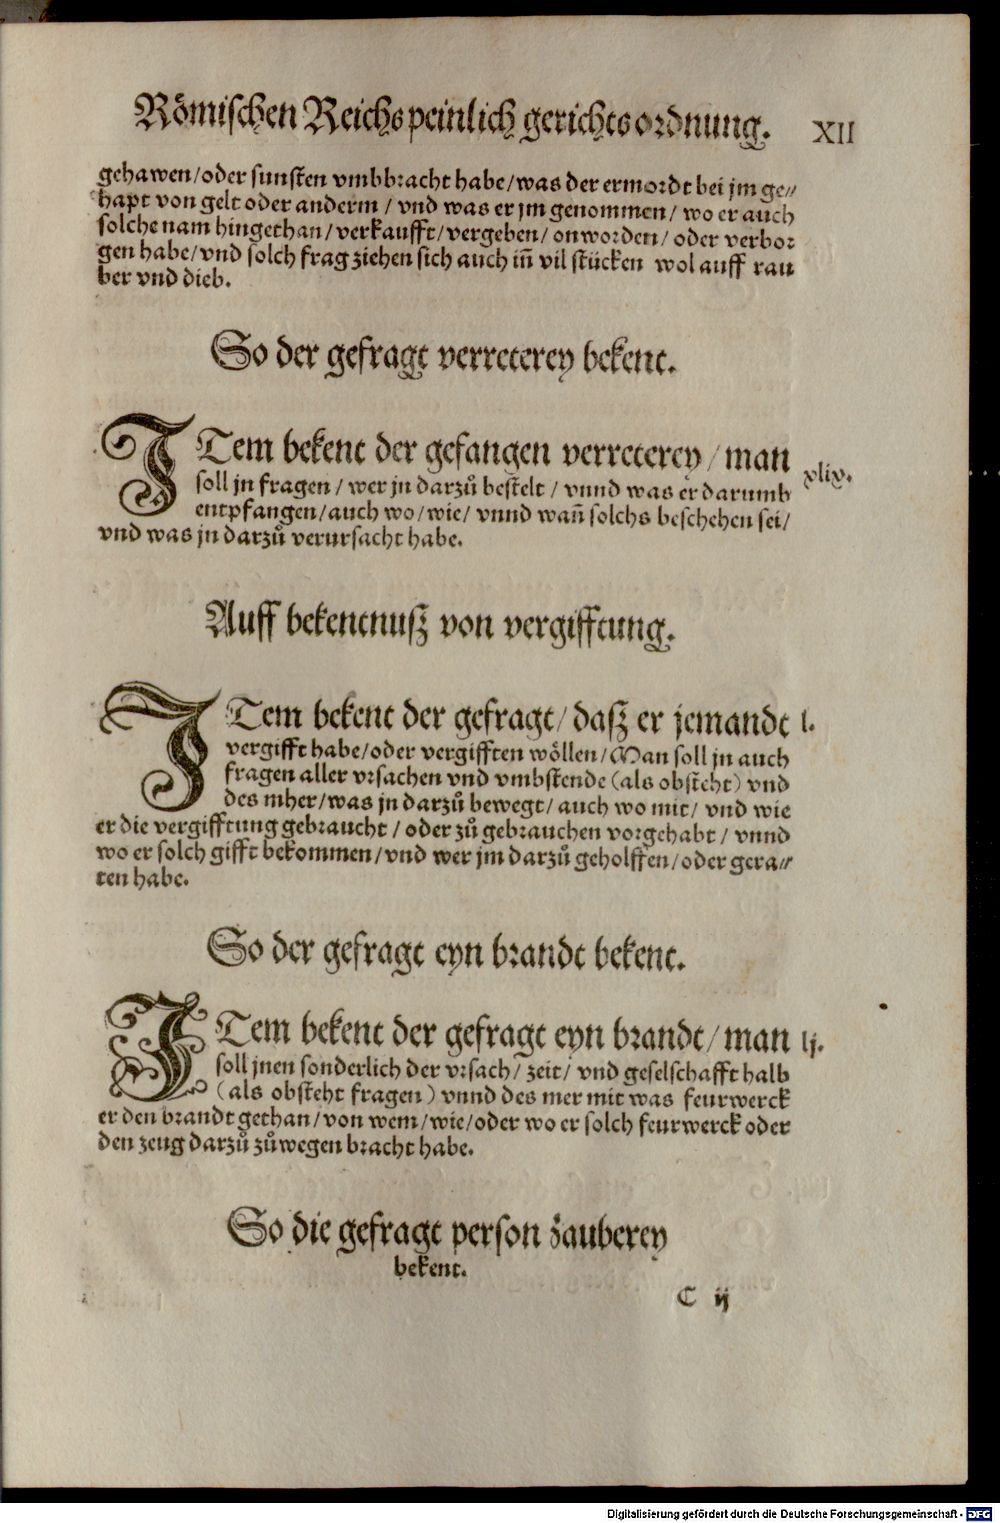 Römischen Reichs peinlich gerichts ordnung. XII
gehawen/oder sunsten vmbbracht habe/was der ermordt bei jm ge⸗
hapt von gelt oder anderm / vnd was er jm genommen / wo er auch
solche nam hingethan/verkaufft/vergeben/onworden/oder verbor
gen habe/vnd solch frag ziehen sich auch iñ vil stücken wol auff rau
ber vnd dieb.
So der gefragt verreterey bekent.
ITem bekent der gefangen verreterey/man xlix.
soll jn fragen / wer jn darzů bestelt / vnnd was er darumb
entpfangen/auch wo/wie/ vnnd wañ solchs beschehen sei/
vnd was jn darzů verursacht habe.
Auff bekentnusz von vergifftung.
ITem bekent der gefragt/dasz er jemandt l.
vergifft habe/oder vergifften wöllen/Man soll jn auch
fragen aller vrsachen vnd vmbstende (als obsteht) vnd
des mher/was jn darzů bewegt/auch wo mit/ vnd wie
er die vergifftung gebraucht / oder zů gebrauchen vorgehabt / vnnd
wo er solch gifft bekommen/vnd wer jm darzů geholffen/oder gera⸗
ten habe.
So der gefragt eyn brandt bekent.
ITem bekent der gefragt eyn brandt/man lj.
soll jnen sonderlich der vrsach/ zeit/ vnd geselschafft halb
(als obsteht fragen) vnnd des mer mit was feurwerck
er den brandt gethan/von wem/wie/oder wo er solch feurwerck oder
den zeug darzů zůwegen bracht habe.
So die gefragt person zauberey
bekent.
C ij
Digitalisierung gefördert durch die Deutsche Forschungsgemeinschaft - DFG